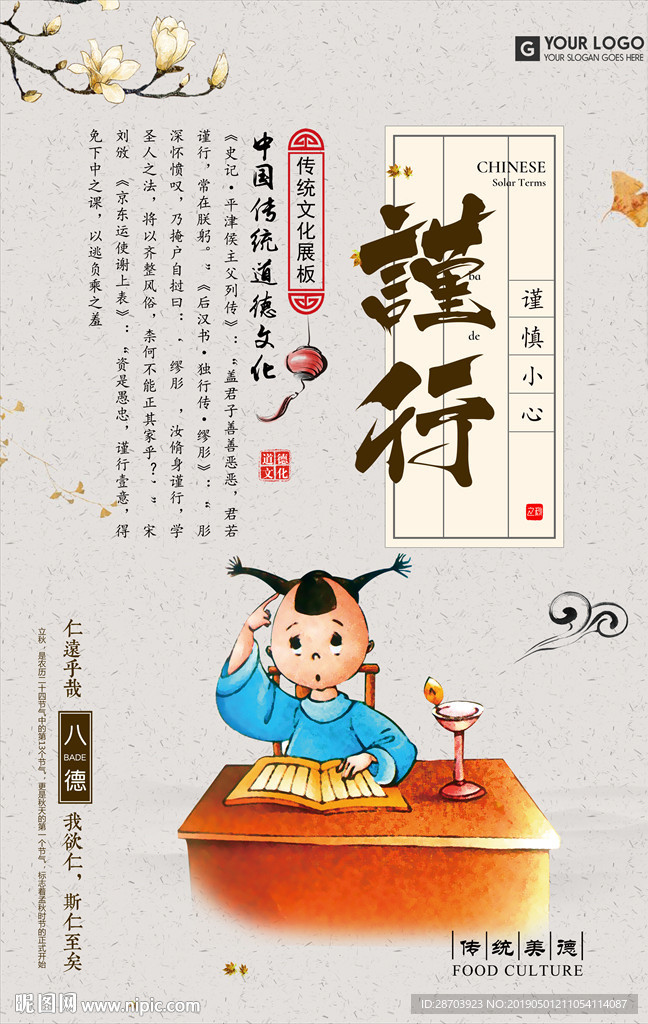 YOUR LOGO
YOUR SLOGAN GOES HERE
CHINESE
Solar Terms
謹行
ba
de
谨慎小心
传统文化展板
中国传统道德文化
道德文化
《史记·平津侯主父列传》：“盖君子善善恶恶，君若
谨行，常在朕躬。”《后汉书·独行传·缪肜》：“肜
深怀愤叹，乃掩户自挝曰：‘缪肜，汝脩身谨行，学
圣人之法，将以齐整风俗，柰何不能正其家乎？’”宋
刘攽《京东运使谢上表》：“资是愚忠，谨行壹意，得
免下中之课，以逃负乘之羞
仁遠乎哉
八德
BADE
我欲仁，斯仁至矣
立秋，是农历二十四节气中的第13个节气，更是秋天的第一个节气，标志着孟秋时节的正式开始
传统美德
FOOD CULTURE
昵图网 www.nipic.com
ID:28703923 NO:20190501211054114087